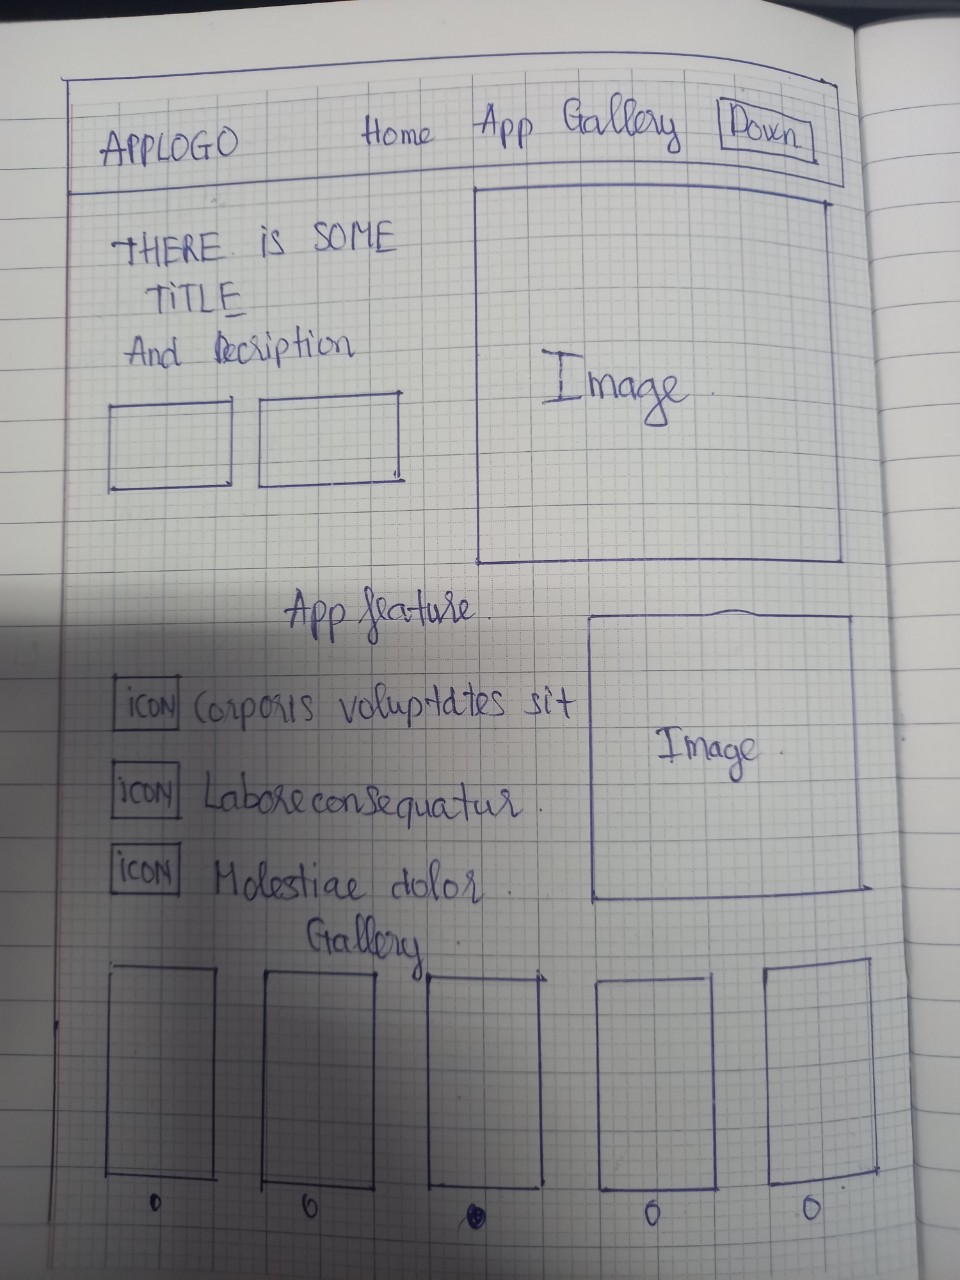 APPLOGO Home App Gallery Down
THERE is SOME
TiTLE
And Decsiption
Image
App feature
iCON Corporis voluptates sit
Image
iCON Labore consequatur
iCON Molestiae dolor
Gallery